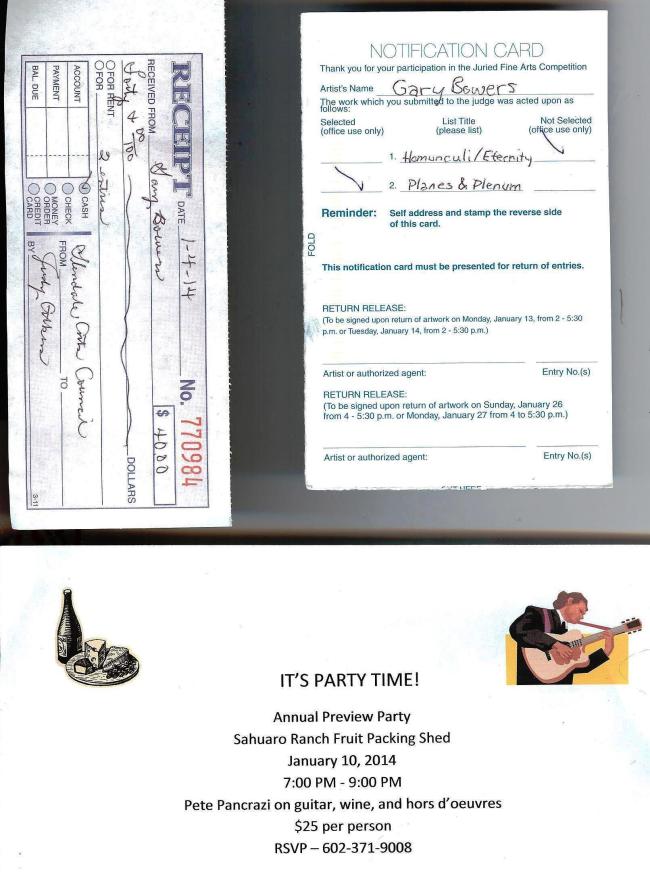 RECEIPT
DATE 1-4-14 No. 770984
RECEIVED FROM Gary Bowers $ 4000
Forty & 00/100 DOLLARS
FOR RENT
FOR 2 entries
ACCOUNT
PAYMENT
BAL. DUE
CASH
CHECK
MONEY ORDER
CREDIT CARD
Glendale Arts Council
FROM TO
BY Judy
3-11
NOTIFICATION CARD
Thank you for your participation in the Juried Fine Arts Competition
Artist's Name Gary Bowers
The work which you submitted to the judge was acted upon as
follows:
Selected List Title Not Selected
(office use only) (please list) (office use only)
1. Homunculi/Eternity
2. Planes & Plenum
Reminder: Self address and stamp the reverse side
of this card.
FOLD
This notification card must be presented for return of entries.
RETURN RELEASE:
(To be signed upon return of artwork on Monday, January 13, from 2 - 5:30
p.m. or Tuesday, January 14, from 2 - 5:30 p.m.)
Artist or authorized agent: Entry No.(s)
RETURN RELEASE:
(To be signed upon return of artwork on Sunday, January 26
from 4 - 5:30 p.m. or Monday, January 27 from 4 to 5:30 p.m.)
Artist or authorized agent: Entry No.(s)
IT'S PARTY TIME!
Annual Preview Party
Sahuaro Ranch Fruit Packing Shed
January 10, 2014
7:00 PM - 9:00 PM
Pete Pancrazi on guitar, wine, and hors d'oeuvres
$25 per person
RSVP – 602-371-9008